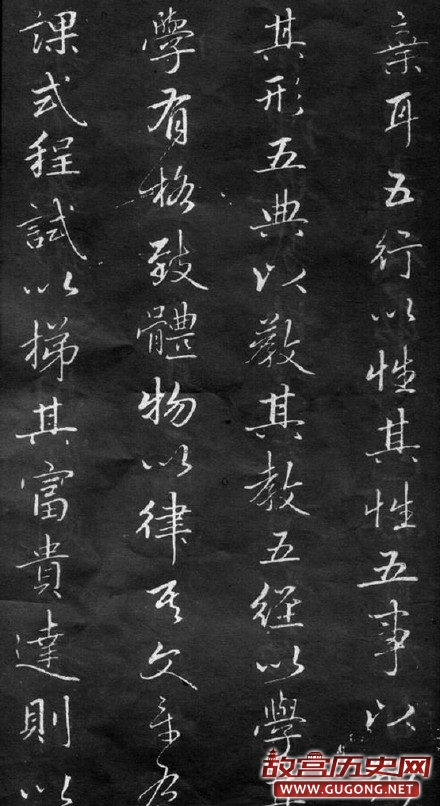 棄耳五行以性其性五事以
其形五典以教其教五經以學
學有格致體物以律其文章
課式程試以梯其富貴達則以
故宫历史网
WWW.GUGONG.NET